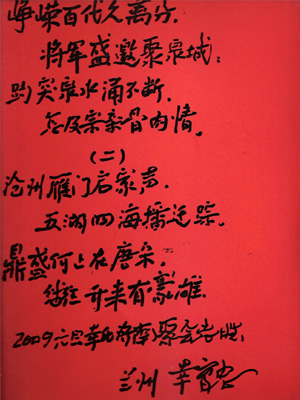 峥嵘百代久离分，
将军盛邀聚泉城；
趵突泉水涌不断，
怎及宗亲骨肉情。
（二）
沧州雁门启家声，
五湖四海播迁踪。
鼎盛何止在唐宋，
继往开来有豪雄。
2009元旦
兰州